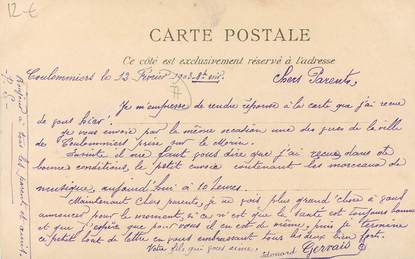 12-€
CARTE POSTALE
Ce côté est exclusivement réservé à l'adresse
Coulommiers le 12 Février 1903
Chers Parents,
Je m'empresse de rendre réponse à la carte que j'ai reçue
de vous hier.
Je vous envoie par la même occasion une des vues de la ville
de Coulommiers prise sur le Morin.
Ensuite il me faut vous dire que j'ai reçue dans de
bonne conditions, le petit envoie contenant les morceaux de
musique, aujourd'hui à 10 heures.
Maintenant Chers parents, je ne vois plus grand chose à vous
annoncer pour le moment, si ce n'est que la santé est toujours bonne
et que j'espère que pour vous il en est de même, puis je termine
ce petit bout de lettre en vous embrassant tous les deux bien fort.
Votre fils, qui vous aime.
Edouard Gervais
Bonjour à tous les parents et amis.